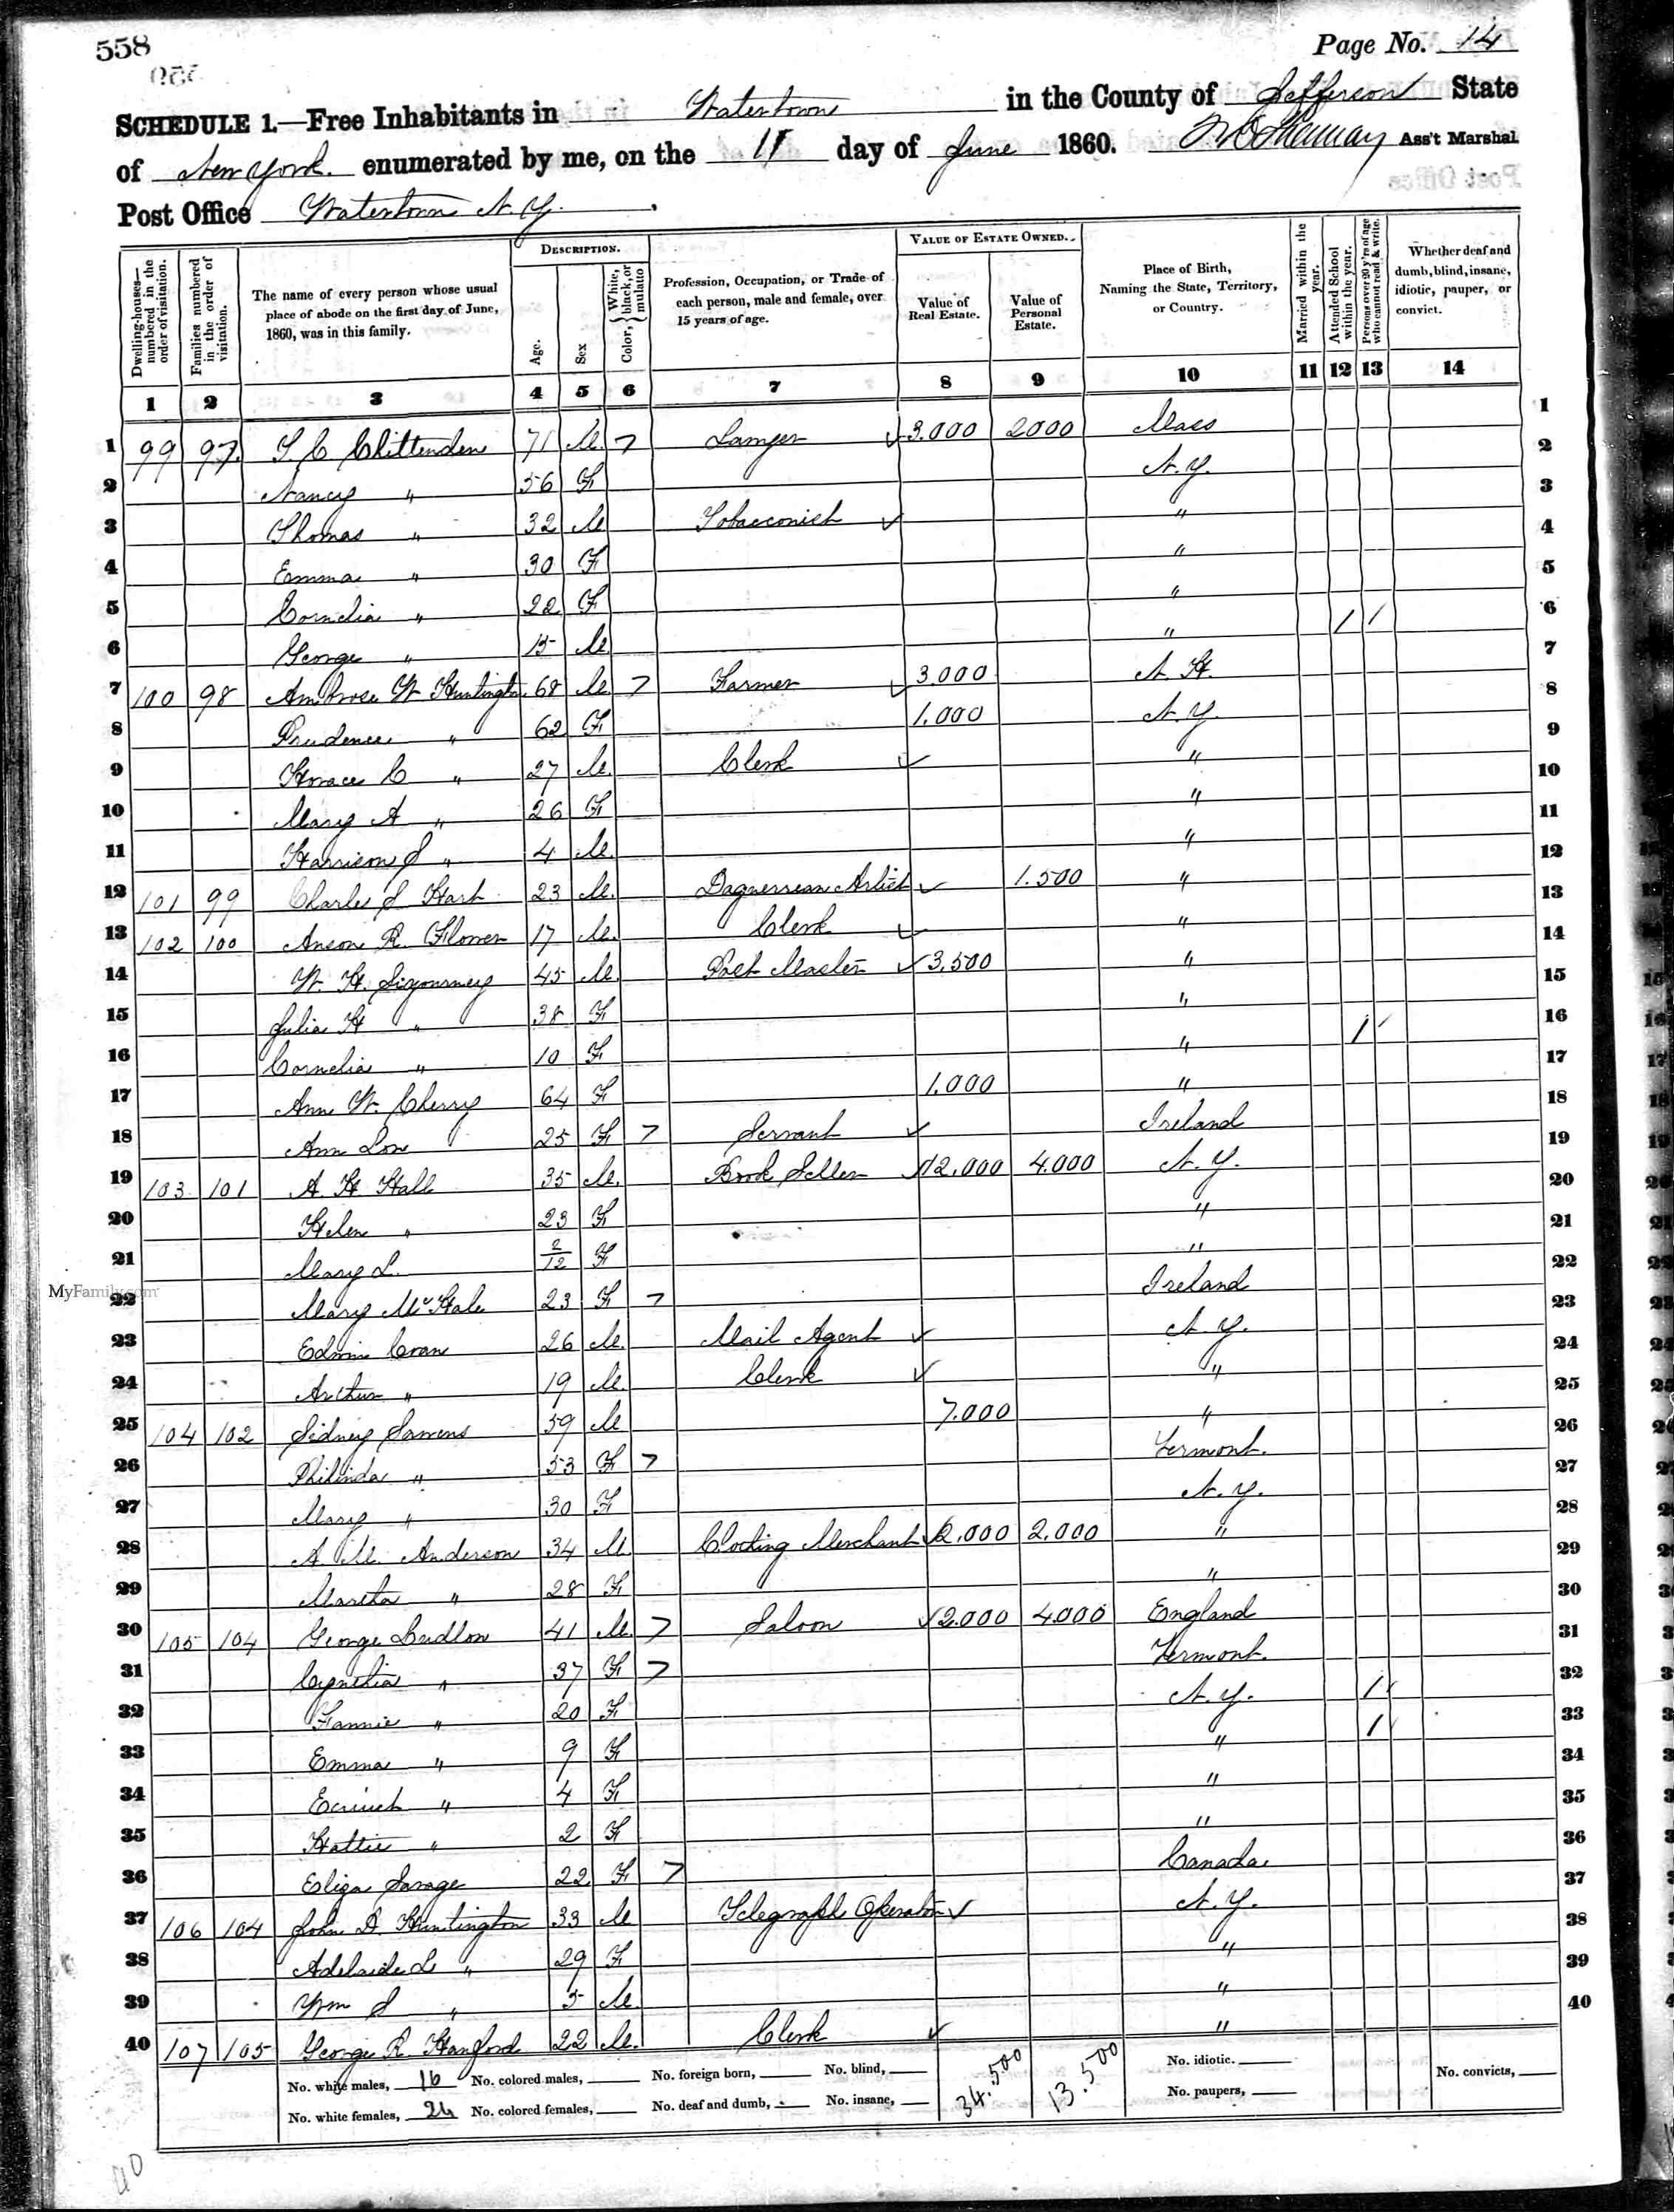 558
Page No. 14
SCHEDULE 1.—Free Inhabitants in Watertown in the County of Jefferson State
of New York. enumerated by me, on the 11 day of June 1860. Ass't Marshal
Post Office Watertown N. Y.
DESCRIPTION. VALUE OF ESTATE OWNED.
Dwelling-houses—numbered in the order of visitation. Families numbered in the order of visitation. The name of every person whose usual place of abode on the first day of June, 1860, was in this family. Age. Sex Color, { White, black, or mulatto Profession, Occupation, or Trade of each person, male and female, over 15 years of age. Value of Real Estate. Value of Personal Estate. Place of Birth, Naming the State, Territory, or Country. Married within the year. Attended School within the year. Persons over 20 y'rs of age who cannot read & write. Whether deaf and dumb, blind, insane, idiotic, pauper, or convict.
1 2 3 4 5 6 7 8 9 10 11 12 13 14
1 99 97. S. C. Chittenden 71 M. 7 Lawyer ✓ 3.000 2000 Mass 1
2 Nancy " 56 F N. Y. 2
3 Thomas " 32 M Tobacconist ✓ " 3
4 Emma " 30 F " 4
5 Cornelia " 22 F " 5
6 George " 15 M " / / 6
7 100 98 Ambrose W. Huntington 68 M. 7 Farmer ✓ 3.000 N. H. 7
8 Prudence " 62 F 1.000 N. Y. 8
9 Horace C " 27 M. Clerk ✓ " 9
10 Mary A " 26 F " 10
11 Harrison S " 4 M. " 11
12 101 99 Charles S Hart 23 M. Daguerrean Artist ✓ 1.500 " 12
13 102 100 Anson R. Flower 17 M. Clerk ✓ " 13
14 W. H. Sigourney 45 M. Post Master ✓ 3.500 " 14
15 Julia H " 38 F " 15
16 Cornelia " 10 F " / 16
17 Ann W. Cherry 64 F 1.000 " 17
18 Ann Low 25 F 7 Servant ✓ Ireland 18
19 103 101 A. H. Hall 35 M. Book Seller ✓ 12.000 4.000 N. Y. 19
20 Helen " 23 F " 20
21 Mary L. 2/12 F " 21
22 Mary McHale 23 F 7 Ireland 22
23 Edwin Cran 26 M. Mail Agent ✓ N. Y. 23
24 Arthur " 19 M. Clerk ✓ " 24
25 104 102 Sidney 59 M 7.000 " 25
26 Philinda " 53 F 7 Vermont. 26
27 Mary " 30 F N. Y. 27
28 A. M. Anderson 34 M. Clothing Merchant ✓ 2.000 2.000 " 28
29 Maretta " 28 F " 29
30 105 104 George Ludlow 41 M. 7 Saloon ✓ 2.000 4.000 England 30
31 Cynthia " 37 F 7 Vermont. 31
32 Fannie " 20 F N. Y. / 32
33 Emma " 9 F " / 33
34 " 4 F " 34
35 Hattie " 2 F " 35
36 Eliza Savage 22 F 7 Canada. 36
37 106 104 John D. Huntington 33 M Telegraph Operator ✓ N. Y. 37
38 Adelaide L " 29 F " 38
39 Wm S " 5 M. " 39
40 107 105 George R. Hanford 22 M. Clerk ✓ " 40
No. white males, 16 No. colored males, No. foreign born, No. blind, 34.500 13.500 No. idiotic. No. convicts,
No. white females, 24 No. colored females, No. deaf and dumb, No. insane, No. paupers,
MyFamily.com